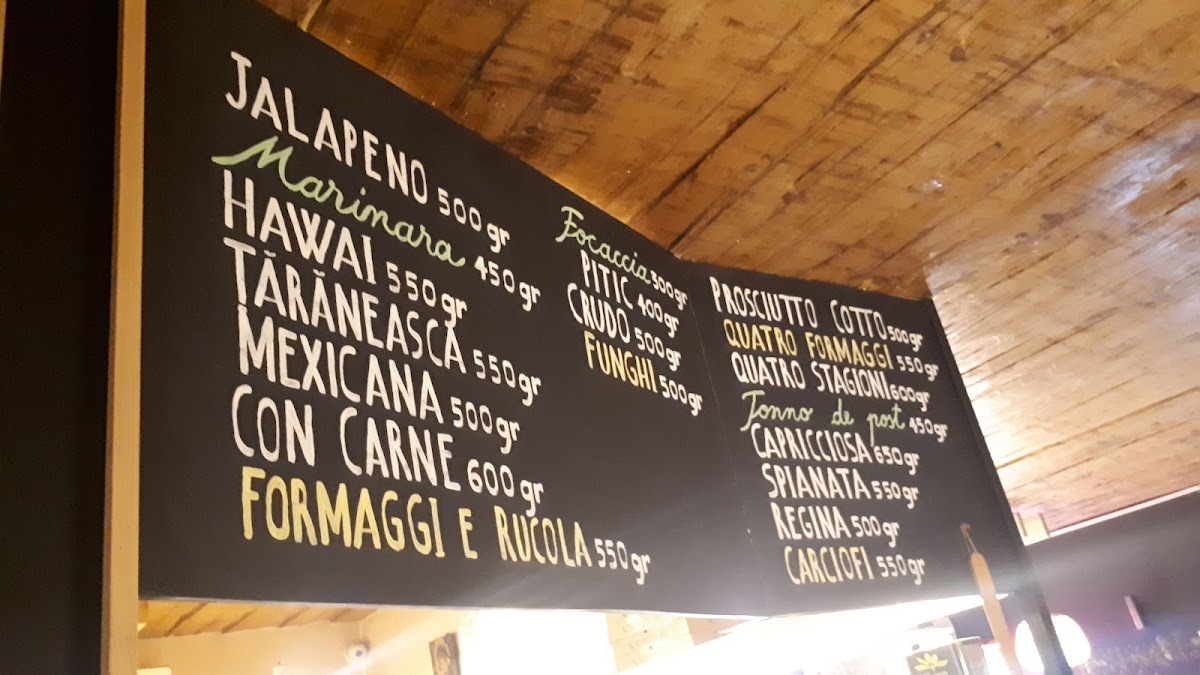 JALAPENO 500 gr
Marinara 450 gr
HAWAI 550 gr
TĂRĂNEASCĂ 550 gr
MEXICANA 500 gr
CON CARNE 600 gr
FORMAGGI E RUCOLA 550 gr
Focaccia 300 gr
PITIC 400 gr
CRUDO 500 gr
FUNGHI 500 gr
PROSCIUTTO COTTO 500 gr
QUATRO FORMAGGI 550 gr
QUATRO STAGIONI 600 gr
Tonno de post 450 gr
CAPRICCIOSA 650 gr
SPIANATA 550 gr
REGINA 500 gr
CARCIOFI 550 gr